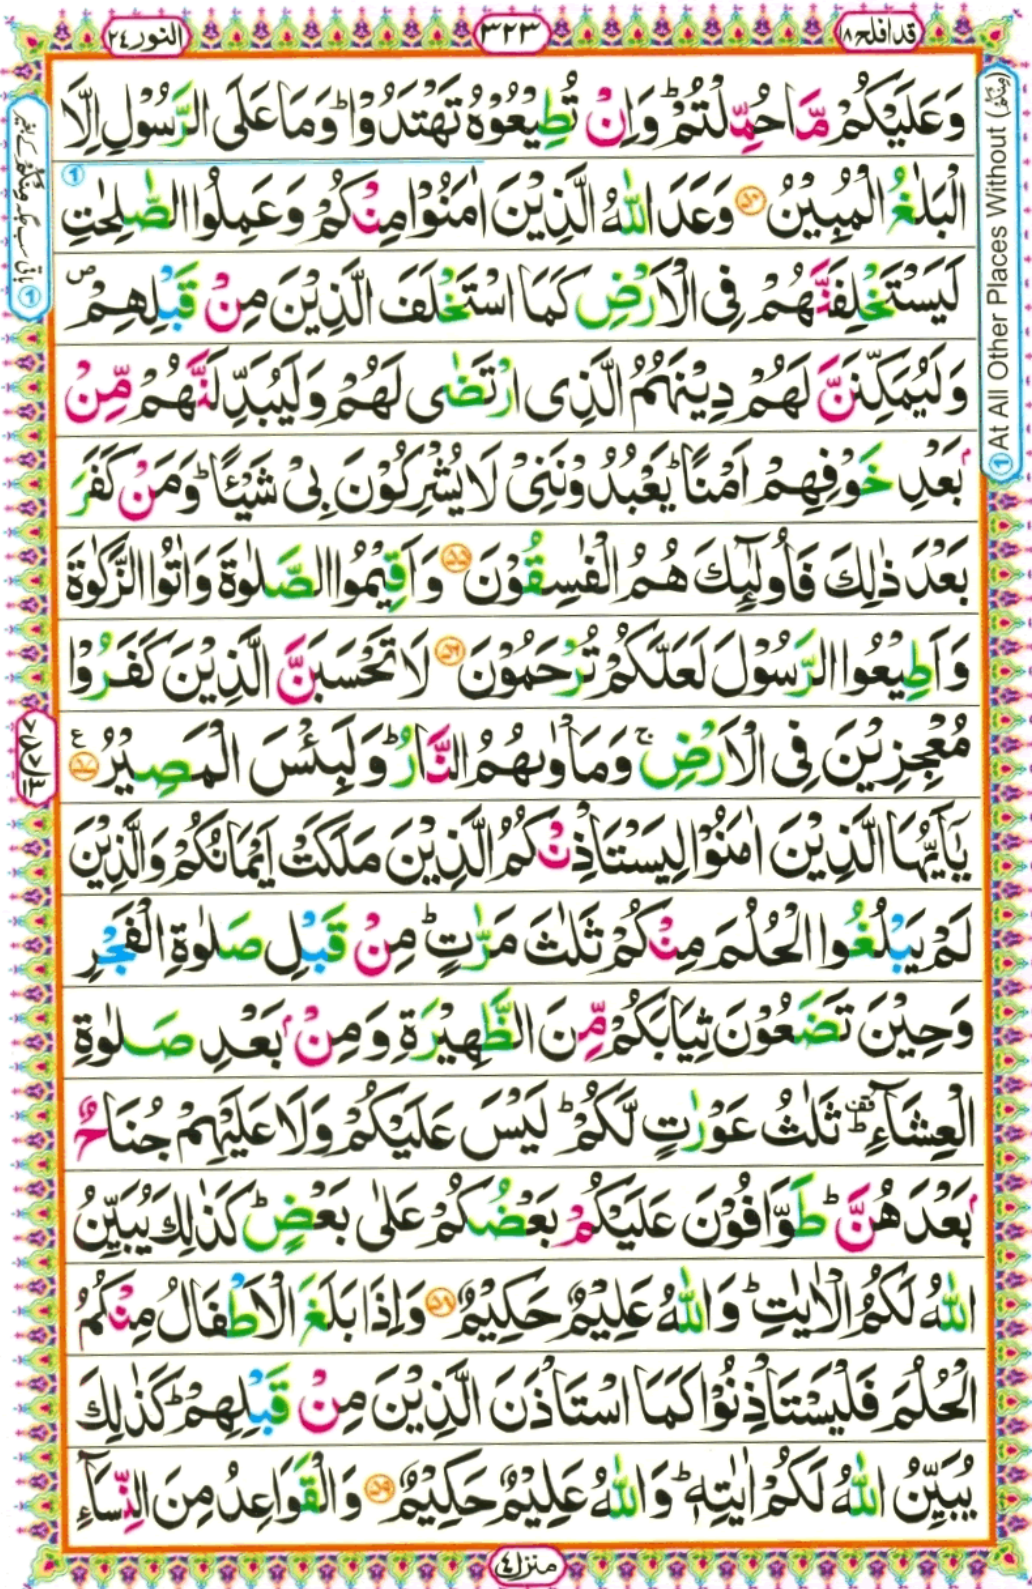 قد افلح ١٨
٣٢٣
النور ٢٤
وَعَلَيْكُمْ مَّا حُمِّلْتُمْ ؕ وَاِنْ تُطِيْعُوْهُ تَهْتَدُوْا ؕ وَمَا عَلَى الرَّسُوْلِ اِلَّا
الْبَلٰغُ الْمُبِيْنُ ﴿۵۴﴾ وَعَدَ اللّٰهُ الَّذِيْنَ اٰمَنُوْا مِنْكُمْ وَعَمِلُوا الصّٰلِحٰتِ
لَيَسْتَخْلِفَنَّهُمْ فِى الْاَرْضِ كَمَا اسْتَخْلَفَ الَّذِيْنَ مِنْ قَبْلِهِمْ ۪
وَلَيُمَكِّنَنَّ لَهُمْ دِيْنَهُمُ الَّذِى ارْتَضٰى لَهُمْ وَلَيُبَدِّلَنَّهُمْ مِّنْۢ
بَعْدِ خَوْفِهِمْ اَمْنًا ؕ يَعْبُدُوْنَنِىْ لَا يُشْرِكُوْنَ بِىْ شَيْئًا ؕ وَمَنْ كَفَرَ
بَعْدَ ذٰلِكَ فَاُولٰٓئِكَ هُمُ الْفٰسِقُوْنَ ﴿۵۵﴾ وَاَقِيْمُوا الصَّلٰوةَ وَاٰتُوا الزَّكٰوةَ
وَاَطِيْعُوا الرَّسُوْلَ لَعَلَّكُمْ تُرْحَمُوْنَ ﴿۵۶﴾ لَا تَحْسَبَنَّ الَّذِيْنَ كَفَرُوْا
مُعْجِزِيْنَ فِى الْاَرْضِ ۚ وَمَاْوٰىهُمُ النَّارُ ؕ وَلَبِئْسَ الْمَصِيْرُ ﴿۵۷﴾ ع
يٰٓاَيُّهَا الَّذِيْنَ اٰمَنُوْا لِيَسْتَاْذِنْكُمُ الَّذِيْنَ مَلَكَتْ اَيْمَانُكُمْ وَالَّذِيْنَ
لَمْ يَبْلُغُوا الْحُلُمَ مِنْكُمْ ثَلٰثَ مَرّٰتٍ ؕ مِنْ قَبْلِ صَلٰوةِ الْفَجْرِ
وَحِيْنَ تَضَعُوْنَ ثِيَابَكُمْ مِّنَ الظَّهِيْرَةِ وَمِنْۢ بَعْدِ صَلٰوةِ
الْعِشَآءِ ؕ قف ثَلٰثُ عَوْرٰتٍ لَّكُمْ ؕ لَيْسَ عَلَيْكُمْ وَلَا عَلَيْهِمْ جُنَاحٌۢ
بَعْدَهُنَّ ؕ طَوَّافُوْنَ عَلَيْكُمْ بَعْضُكُمْ عَلٰى بَعْضٍ ؕ كَذٰلِكَ يُبَيِّنُ
اللّٰهُ لَكُمُ الْاٰيٰتِ ؕ وَاللّٰهُ عَلِيْمٌ حَكِيْمٌ ﴿۵۸﴾ وَاِذَا بَلَغَ الْاَطْفَالُ مِنْكُمُ
الْحُلُمَ فَلْيَسْتَاْذِنُوْا كَمَا اسْتَاْذَنَ الَّذِيْنَ مِنْ قَبْلِهِمْ ؕ كَذٰلِكَ
يُبَيِّنُ اللّٰهُ لَكُمْ اٰيٰتِهٖ ؕ وَاللّٰهُ عَلِيْمٌ حَكِيْمٌ ﴿۵۹﴾ وَالْقَوَاعِدُ مِنَ النِّسَآءِ
منزل ٤
① At All Other Places Without (مِنْكُمْ)